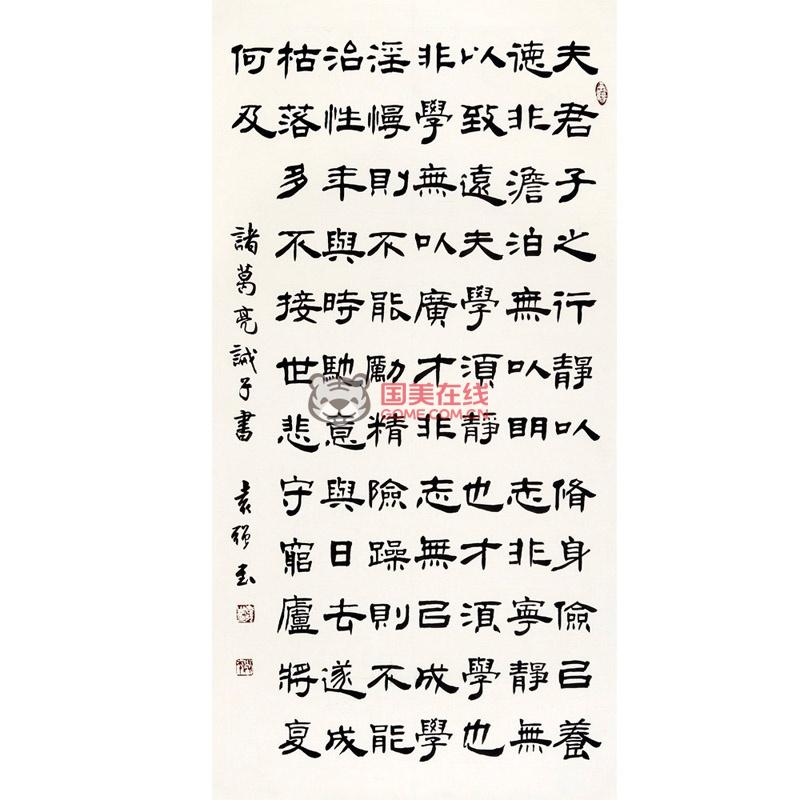 夫君子之行靜以脩身儉已養
德非澹泊無以明志非寧靜無
以致遠夫學須靜也才須學也
非學無以廣才非志無已成學
淫慢則不能勵精險躁則不能
治性年與時馳意與日去遂成
枯落多不接世悲守窮廬將复
何及
諸葛亮誡子書 袁强書
国美在线
GOME.COM.CN